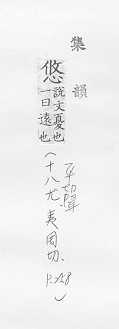 集韻
悠
說文憂也
一曰遠也
平切韓
(十八尤夷周切.
P.258)